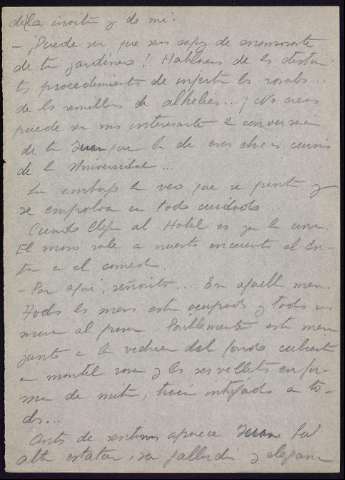 della invita y de mi.
- ¡Puede ser que sea capaz de enamorarte
de tu jardinera! Hablareis de los distin-
tos procedimientos de injertar los rosales...
de las semillas de alhelies...; ¡No crees
puede ser mas interesante la conversacion
de tu Juana que la de esos chicos cursis
de la Universidad...
Sin embargo la veo que se pinta y
se empolva con todo cuidado.
Cuando llego al Hotel es ya la una.
El mozo sale a nuestro encuentro al en-
trar en el comedor.
- Por aqui, señorita... En aquella mesa.
Todas las mesas estan ocupadas y todos nos
miran al pasar. Sencillamente esta mesa
junto a la vidriera del fondo cubierta
con mantel rosa y las servilletas en for-
ma de mitra, tiene intrigados a to-
dos...
Antes de sentarnos aparece Juan. Su
alta estatura, su palidez y elegan-